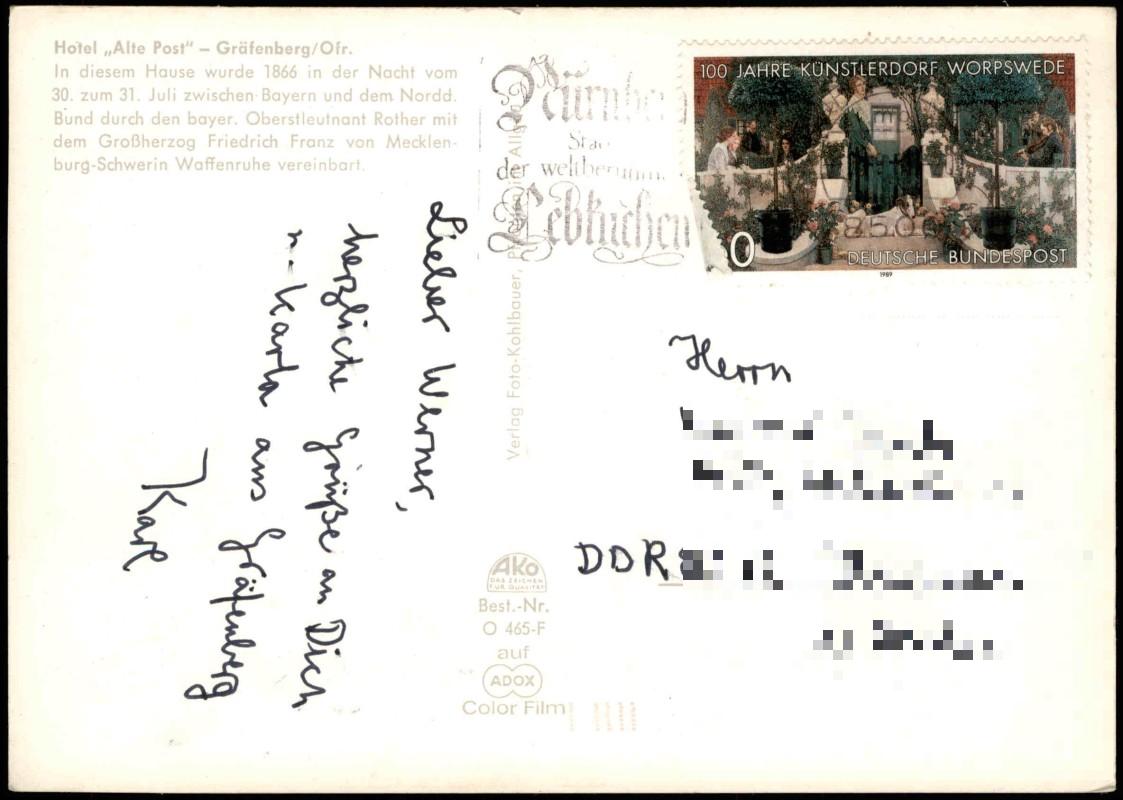 Hotel „Alte Post“ – Gräfenberg/Ofr.
In diesem Hause wurde 1866 in der Nacht vom
30. zum 31. Juli zwischen Bayern und dem Nordd.
Bund durch den bayer. Oberstleutnant Rother mit
dem Großherzog Friedrich Franz von Mecklen-
burg-Schwerin Waffenruhe vereinbart.
Lieber Werner,
herzliche Grüße an Dich
u. Karla aus Gräfenberg
Karl
Verlag Foto-Kohlbauer,
Nürnber
der weltberühm
Lebkuchen
100 JAHRE KÜNSTLERDORF WORPSWEDE
0
DEUTSCHE BUNDESPOST
1989
Herrn
DDR
AKO
DAS ZEICHEN
FÜR QUALITÄT
Best.-Nr.
O 465-F
auf
ADOX
Color Film